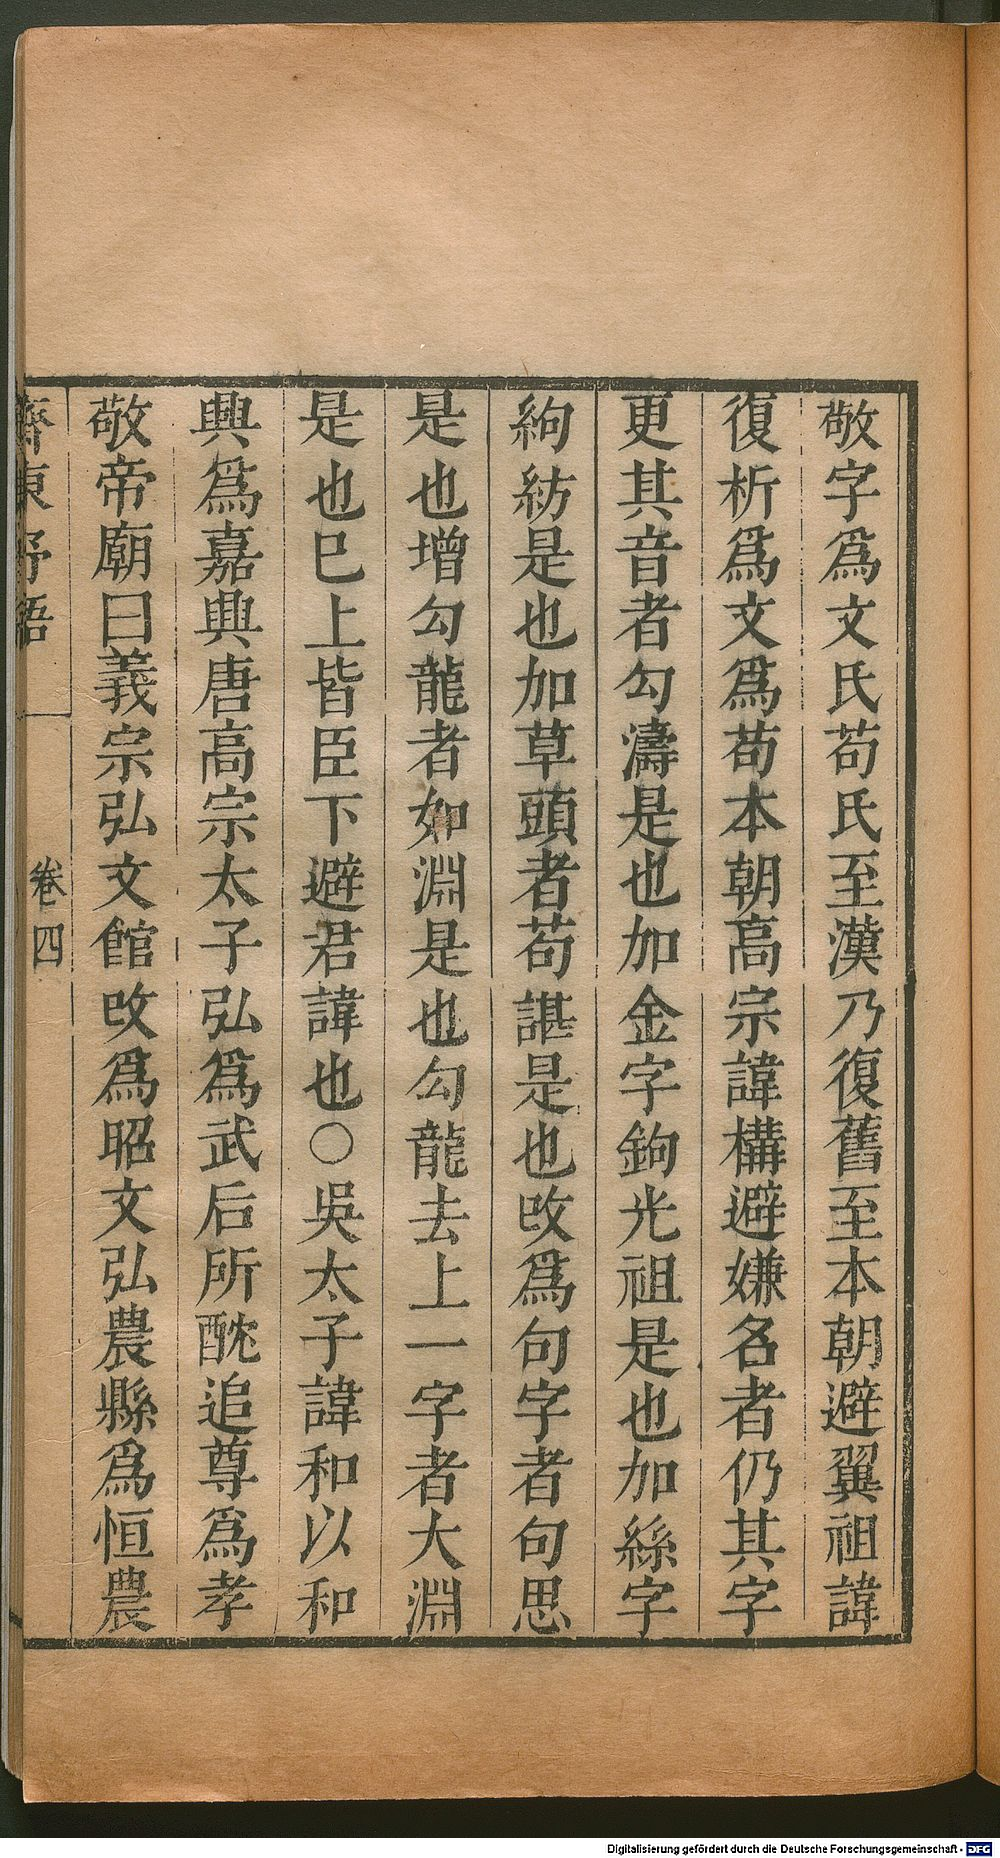 敬字爲文氏苟氏至漢乃復舊至本朝避翼祖諱
復析爲文爲苟本朝高宗諱構避嫌名者仍其字
更其音者勾濤是也加金字鉤光祖是也加絲字
絇紡是也加草頭者苟諶是也改爲句字者句思
是也增勾龍者如淵是也勾龍去上一字者大淵
是也已上皆臣下避君諱也○吳太子諱和以和
興爲嘉興唐高宗太子弘爲武后所酖追尊爲孝
敬帝廟曰義宗弘文館改爲昭文弘農縣爲恒農
齊東野語 卷四
Digitalisierung gefördert durch die Deutsche Forschungsgemeinschaft - DFG